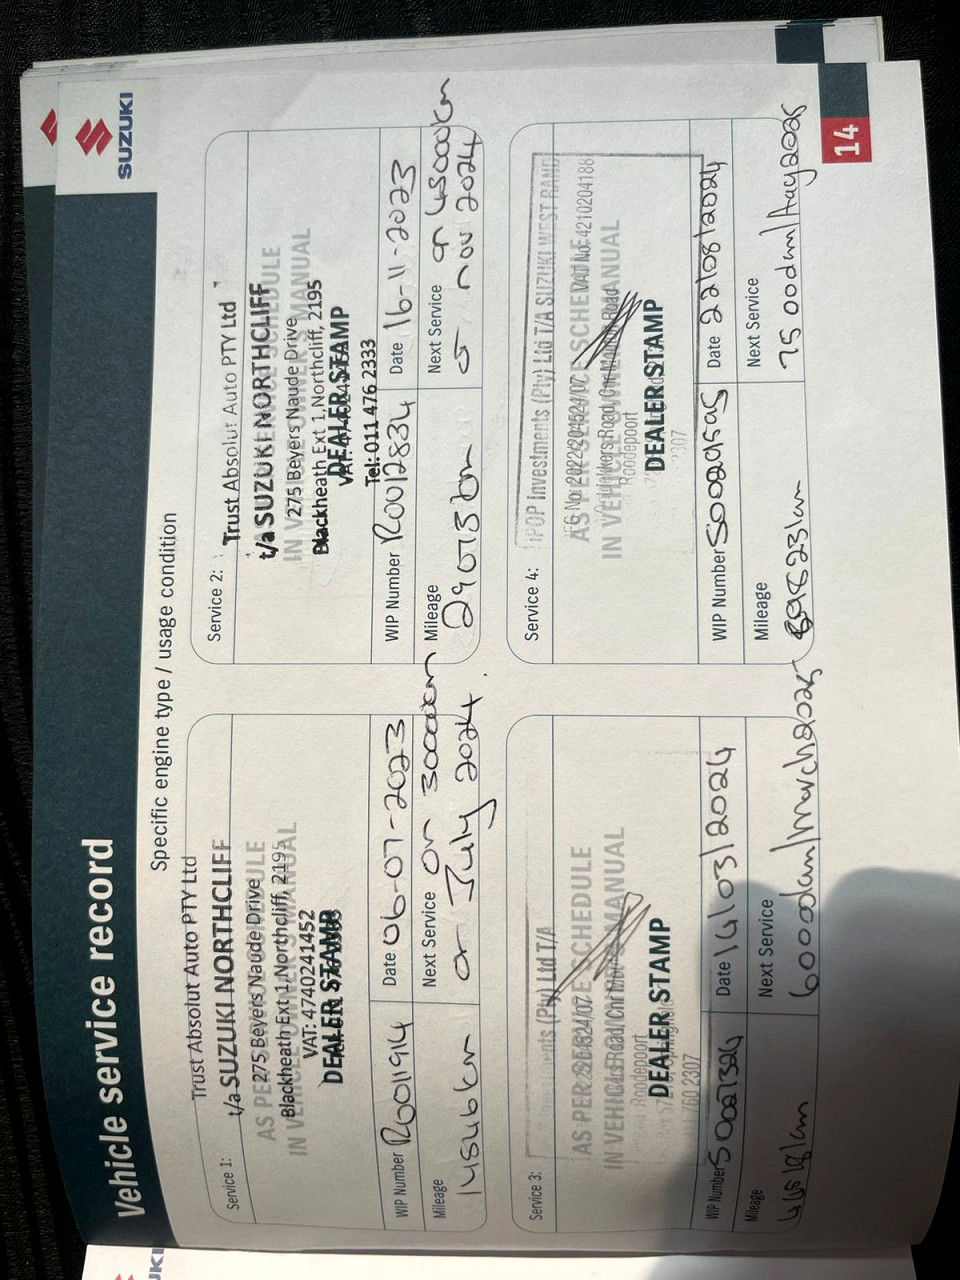 Vehicle service record
SUZUKI
Specific engine type / usage condition
Service 1:
Trust Absolut Auto PTY Ltd
t/a SUZUKI NORTHCLIFF
AS PER SERVICE SCHEDULE
275 Beyers Naude Drive
IN VEHICLE OWNER'S MANUAL
Blackheath Ext 1, Northcliff, 2195
VAT: 4740241452
DEALER STAMP
WIP Number R0011914
Date 06-07-2023
Mileage
14546km
Next Service on 30000km
or July 2024.
Service 2:
Trust Absolut Auto PTY Ltd
t/a SUZUKI NORTHCLIFF
AS PER SERVICE SCHEDULE
275 Beyers Naude Drive
IN VEHICLE OWNER'S MANUAL
Blackheath Ext 1, Northcliff, 2195
DEALER STAMP
Tel: 011 476 2333
WIP Number R0012834
Date 16-11-2023
Mileage
29073km
Next Service or 45000km
nov 2024
Service 3:
(Pty) Ltd T/A
AS PER SERVICE SCHEDULE
IN VEHICLE OWNER'S MANUAL
Roodepoort
DEALER STAMP
760 2307
WIP Number S0021324
Date 14/03/2024
Mileage
44518km
Next Service
60000km/March2025
Service 4:
IPOP Investments (Pty) Ltd T/A SUZUKI WEST RAND
AS PER SERVICE SCHEDULE
VAT No: 4210204188
IN VEHICLE OWNER'S MANUAL
Roodepoort
DEALER STAMP
2307
WIP Number S0021595
Date 22/08/2024
Mileage
59823km
Next Service
75 000km/Aug2025
14